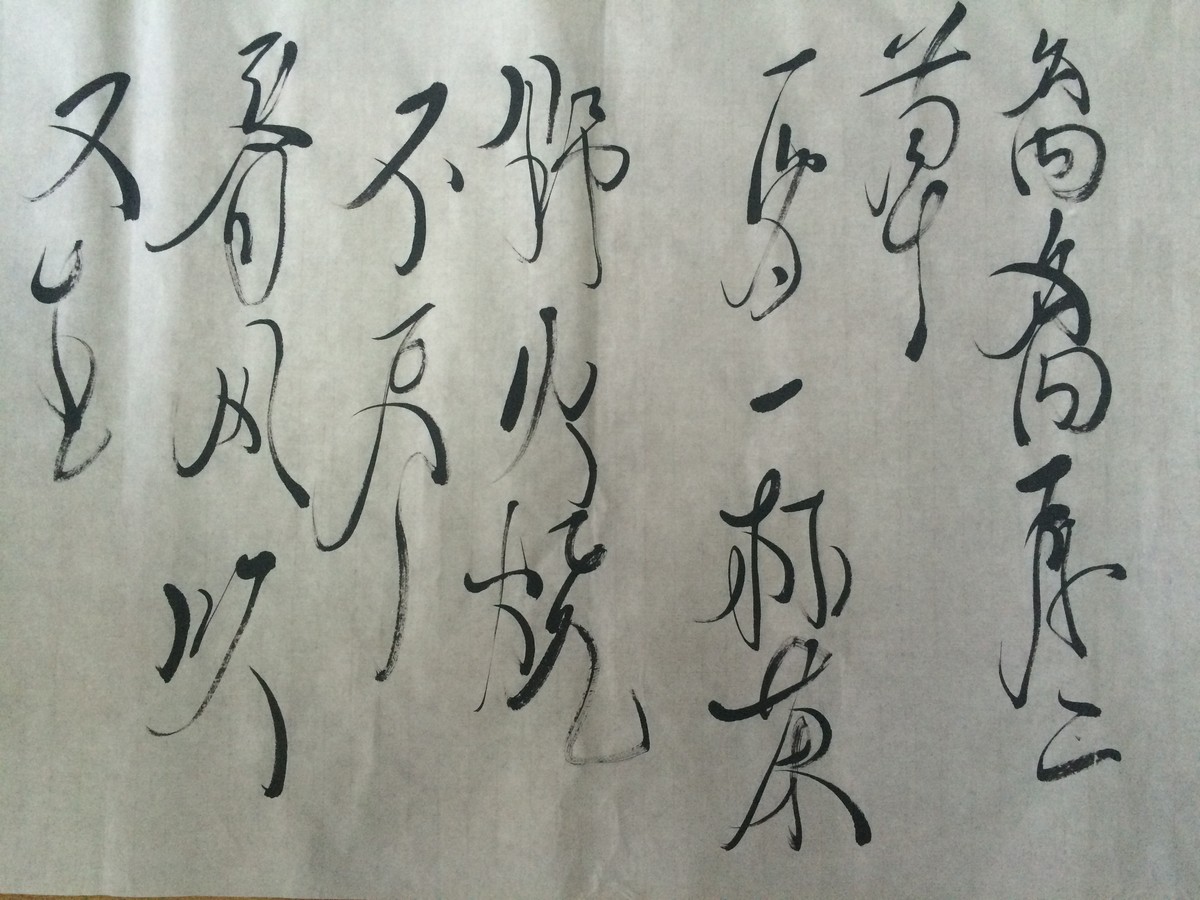 离离原上
草
一岁一枯荣
野火烧
不尽
春风吹
又生